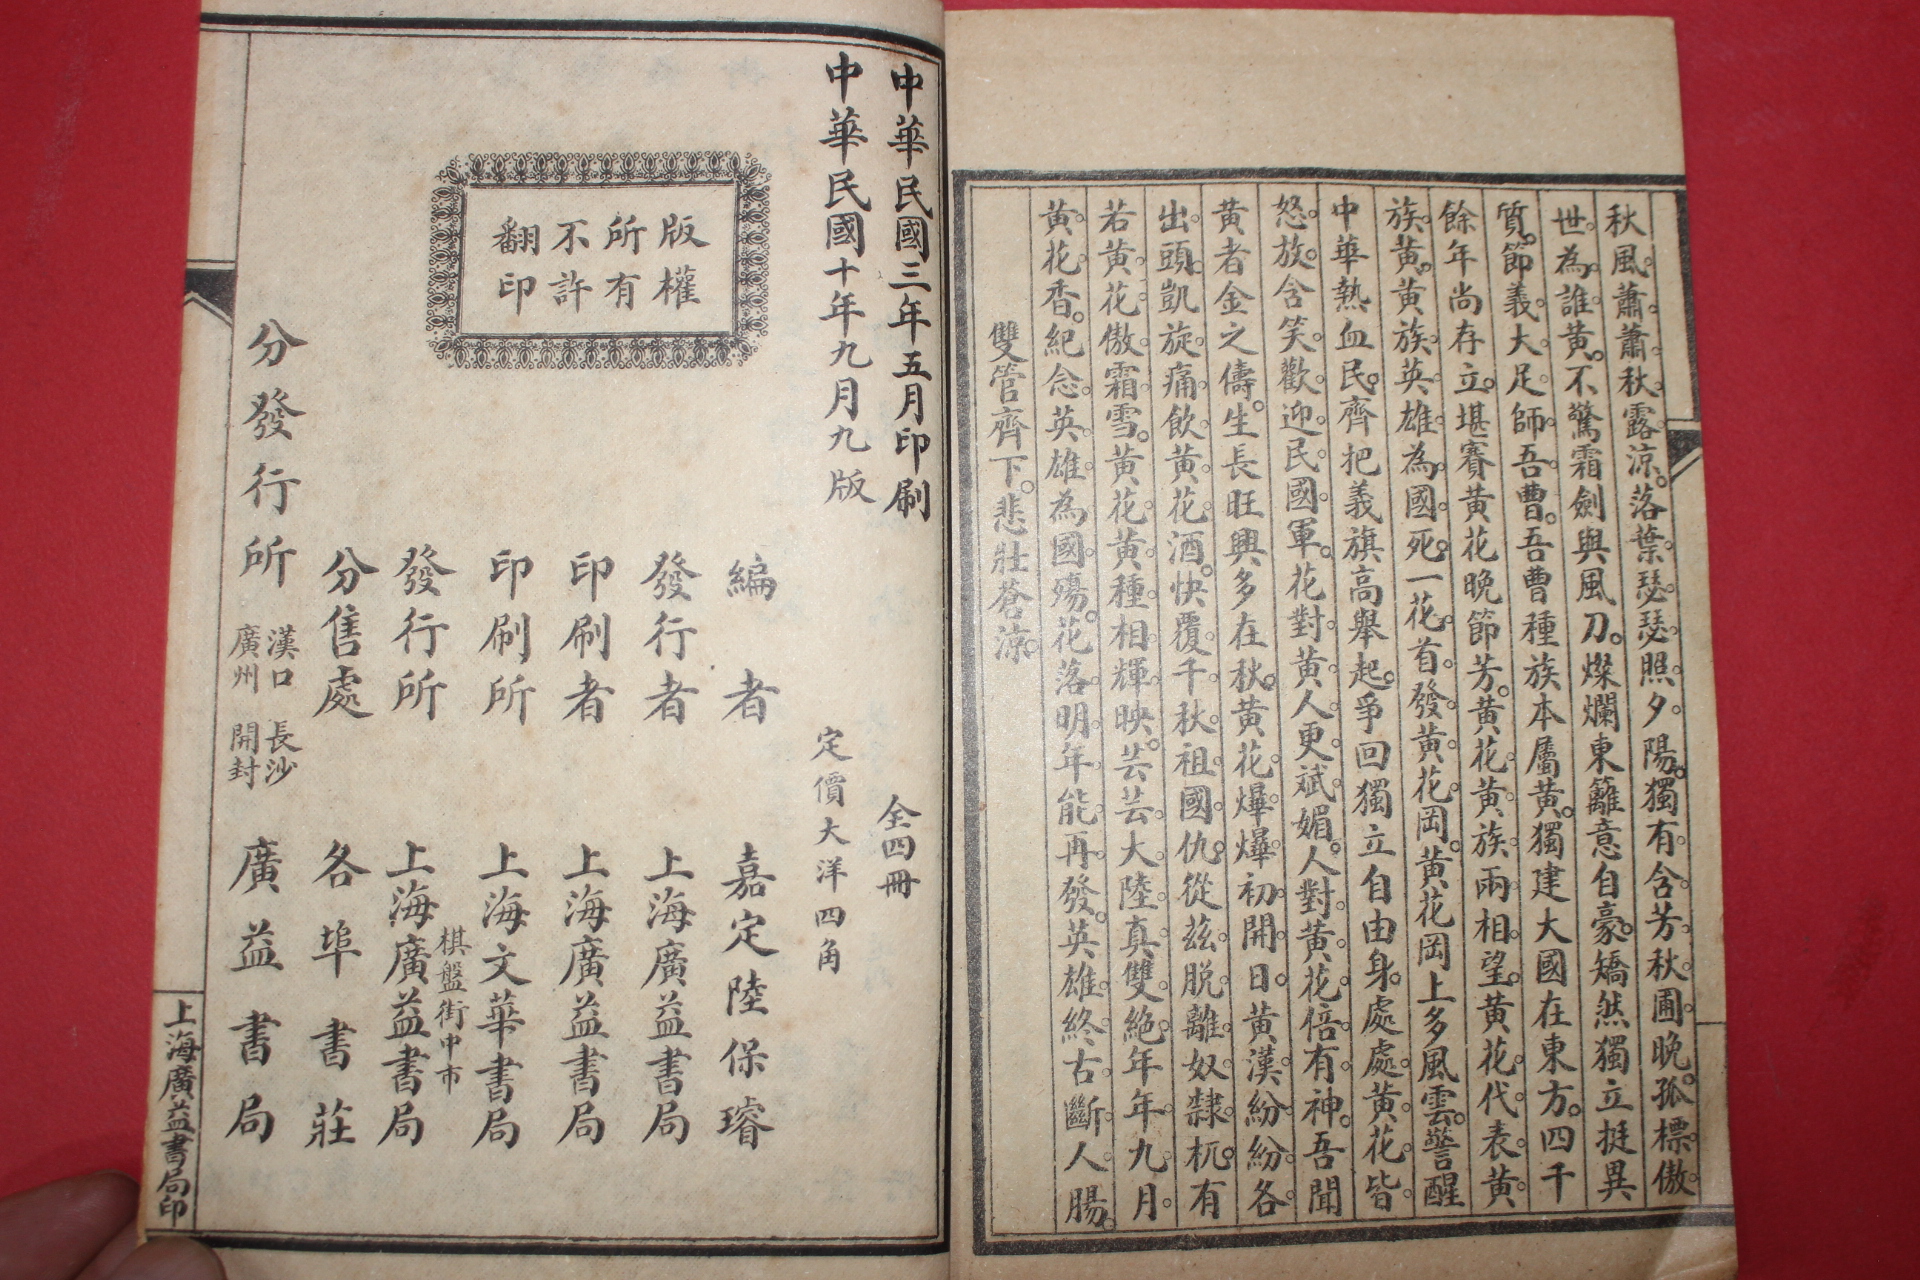 秋風蕭蕭秋露涼。落葉瑟瑟照夕陽。獨有含芳秋圃晚。孤標傲
世為誰黃。不驚霜劍與風刀。燦爛東籬意自豪。矯然獨立挺異
質。節義大足師吾曹。吾曹種族本屬黃。獨建大國在東方。四千
餘年尚存立。堪賽黃花晚節芳。黃花黃族兩相望。黃花代表黃
族黃。黃族英雄為國死。一花首發黃花岡。黃花岡上多風雲。警醒
中華熱血民。齊把義旗高舉起。爭回獨立自由身。處處黃花皆
怒放。含笑歡迎民國軍。花對黃人更斌媚。人對黃花倍有神。吾聞
黃者金之儔。生長旺興多在秋。黃花爗爗初開日。黃漢紛紛各
出頭。凱旋痛飲黃花酒。快覆千秋祖國仇。從茲脫離奴隸杌。有
若黃花傲霜雪。黃花黃種相輝映。芸芸大陸真雙絕。年年九月
黃花香。紀念英雄為國殤。花落明年能再發。英雄終古斷人腸。
雙管齊下。悲壯蒼涼。
中華民國三年五月印刷
中華民國十年九月九版
全四冊
定價大洋四角
版權
所有
不許
翻印
編者 嘉定陸保璿
發行者 上海廣益書局
印刷者 上海廣益書局
印刷所 上海文華書局
棋盤街中市
發行所 上海廣益書局
分售處 各埠書莊
分發行所 漢口 長沙
廣州 開封
廣益書局
上海廣益書局印